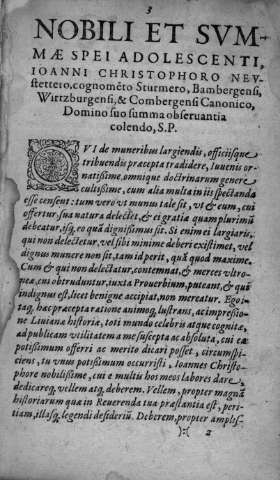 3
NOBILI ET SVM-
MÆ SPEI ADOLESCENTI,
IOANNI CHRISTOPHORO NEV-
stettero, cognomēto Sturmero, Bambergensi,
Wirtzburgensi, & Combergensi Canonico,
Domino suo summa obseruantia
colendo, S.P.
QVI de muneribus largiendis, officiisque
tribuendis præcepta tradidere, Iuuenis or-
natissime, omnique doctrinarum genere
cultissime, cum alia multa in iis spectanda
esse censent: tum vero vt munus tale sit, vt & eum, cui
offertur sua natura delectet, & ei gratiæ quamplurimū
debeatur, isq, eo quà dignissimus sit. Si enim ei largiaris,
qui non delectetur, vel sibi minime deberi existimet, vel
dignus munere non sit, tam id perit, quā quod maxime.
Cum & qui non delectatur, contemnat, & merces vltro-
neæ, cui obtruduntur, iuxta Prouerbium, puteant, & qui
indignus est, licet benigne accipiat, non mereatur. Ego i-
taq, hac præcepta ratione animoq, lustrans, ac impresio-
ne Liuianæ historiæ, toti mundo celebris atque cognitæ,
ad publicam vtilitatem a me suscepta ac absoluta, cui eæ
potissimum offerri ac merito dicari posset, circumspi-
ciens, tu vnus potissimum occurristi, Ioannes Christo-
phore nobilissime, cui e multis hos meos labores dare,
dedicareq, vellem atq, deberem. Vellem, propter magnā
historiarum quæ in Reuerenda tua præstantia est, peri-
tiam, illasq, legendi desiderium. Deberem, propter amplis-
):( 2